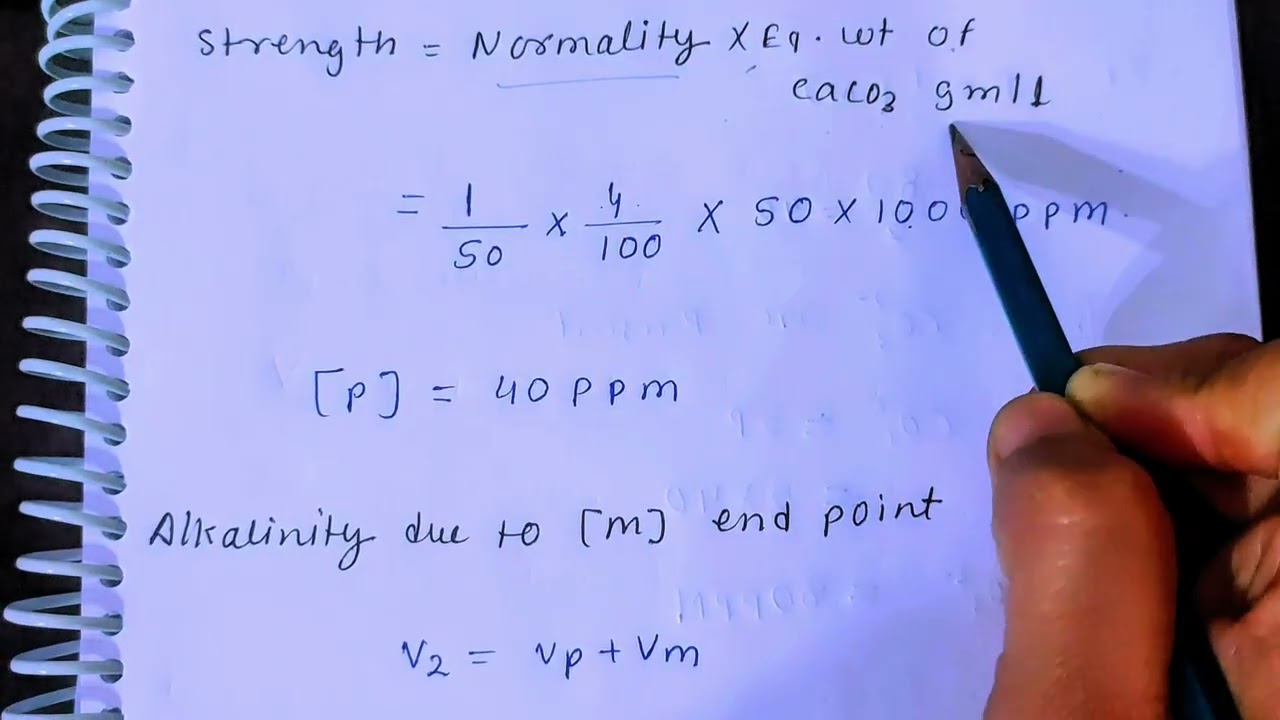 Strength = Normality × Eq. wt of
CaCO3 gm/l
= 1/50 × 4/100 × 50 × 1000 ppm.
[P] = 40 ppm
Alkalinity due to [m] end point
V2 = Vp + Vm